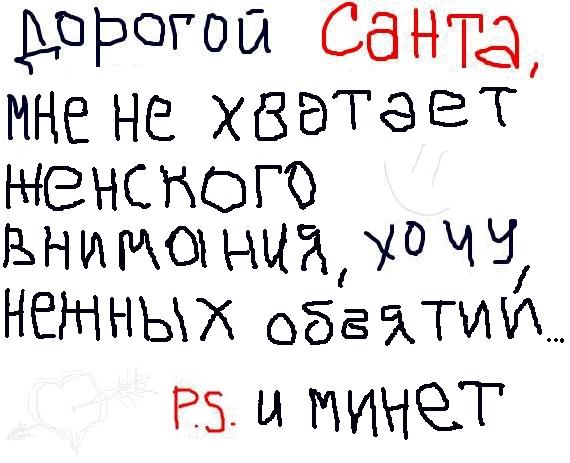 Дорогой Санта,
мне не хватает
женского
внимания, хочу
нежных обвятий...
P.S. и минет